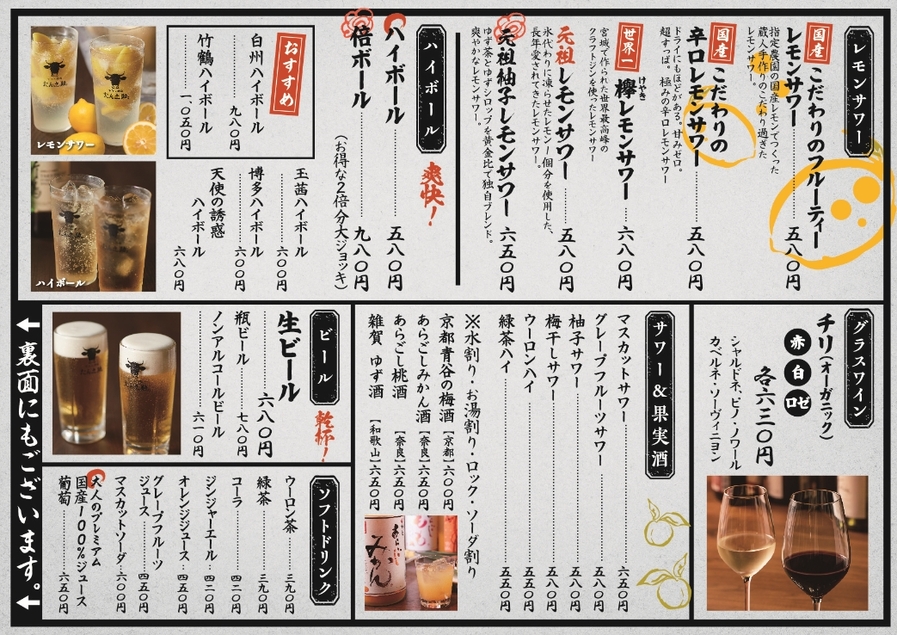 レモンサワー
国産 こだわりのフルーティー
レモンサワー 五八〇円
指定農園の国産レモンでつくった
蔵人手作りのこだわり過ぎた
レモンサワー。
国産 こだわりの
辛口レモンサワー 五八〇円
ドライにもほどがある。甘みゼロ。
超すっぱ。極みの辛口レモンサワー
世界一 欅レモンサワー 六八〇円
けやき
宮城で作られた世界最高峰の
クラフトジンを使ったレモンサワー
元祖レモンサワー 五八〇円
氷代わりに凍らせたレモン一個分を使用した、
長年愛されてきたレモンサワー。
元祖柚子レモンサワー 六五〇円
ゆず茶とゆずシロップを黄金比で独自ブレンド。
爽やかなレモンサワー。
ハイボール
爽快!
ハイボール 五八〇円
倍ボール 九八〇円
(お得な2倍分大ジョッキ)
おすすめ
白州ハイボール 九八〇円
竹鶴ハイボール 一〇五〇円
玉茜ハイボール 六〇〇円
博多ハイボール 六〇〇円
天使の誘惑
ハイボール 六八〇円
レモンサワー
ハイボール
グラスワイン
チリ(オーガニック)
赤 白 ロゼ
各六三〇円
シャルドネ、ピノ・ノワール
カベルネ・ソーヴィニヨン
サワー&果実酒
マスカットサワー 六五〇円
グレープフルーツサワー 五八〇円
柚子サワー 五八〇円
梅干しサワー 五八〇円
ウーロンハイ 五五〇円
緑茶ハイ 五五〇円
※水割り・お湯割り・ロック・ソーダ割り
京都青谷の梅酒 [京都] 六〇〇円
あらごしみかん酒 [奈良] 六五〇円
あらごし桃酒 [奈良] 六五〇円
雑賀 ゆず酒 [和歌山] 六五〇円
みかん
ビール
乾杯!
生ビール 六八〇円
瓶ビール 七八〇円
ノンアルコールビール 六一〇円
ソフトドリンク
ウーロン茶 三九〇円
緑茶 三九〇円
コーラ 四二〇円
ジンジャーエール 四二〇円
オレンジジュース 四五〇円
グレープフルーツ
ジュース 四五〇円
マスカットソーダ 六〇〇円
大人のプレミアム
国産100%ジュース
葡萄 六五〇円
←裏面にもございます。←